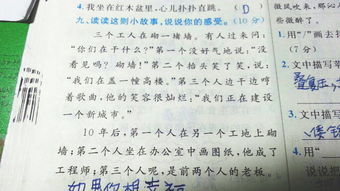 4.我坐在红木盆里,心儿扑扑直跳。 (D)
九、读读这则小故事,说说你的感受。(10分)
三个工人在砌一堵墙。有人过来问:
"你们在干什么?"第一个没好气地说:"没
看见吗?砌墙!"第二个抬头笑了笑,说:
"我们在盖一幢高楼。"第三个人边干边哼
着歌曲,他的笑容很灿烂:"我们正在建设
一个新城市。"
10年后,第一个人在另一个工地上砌
墙;第二个人坐在办公室中画图纸,他成了
工程师;第三个人呢,是前两个人的老板。
如果你想幸福
微风吹来,那
些微醉了。
用"/"画去括
(7分)
文中描写草
3.文中描写
4.用"
说说